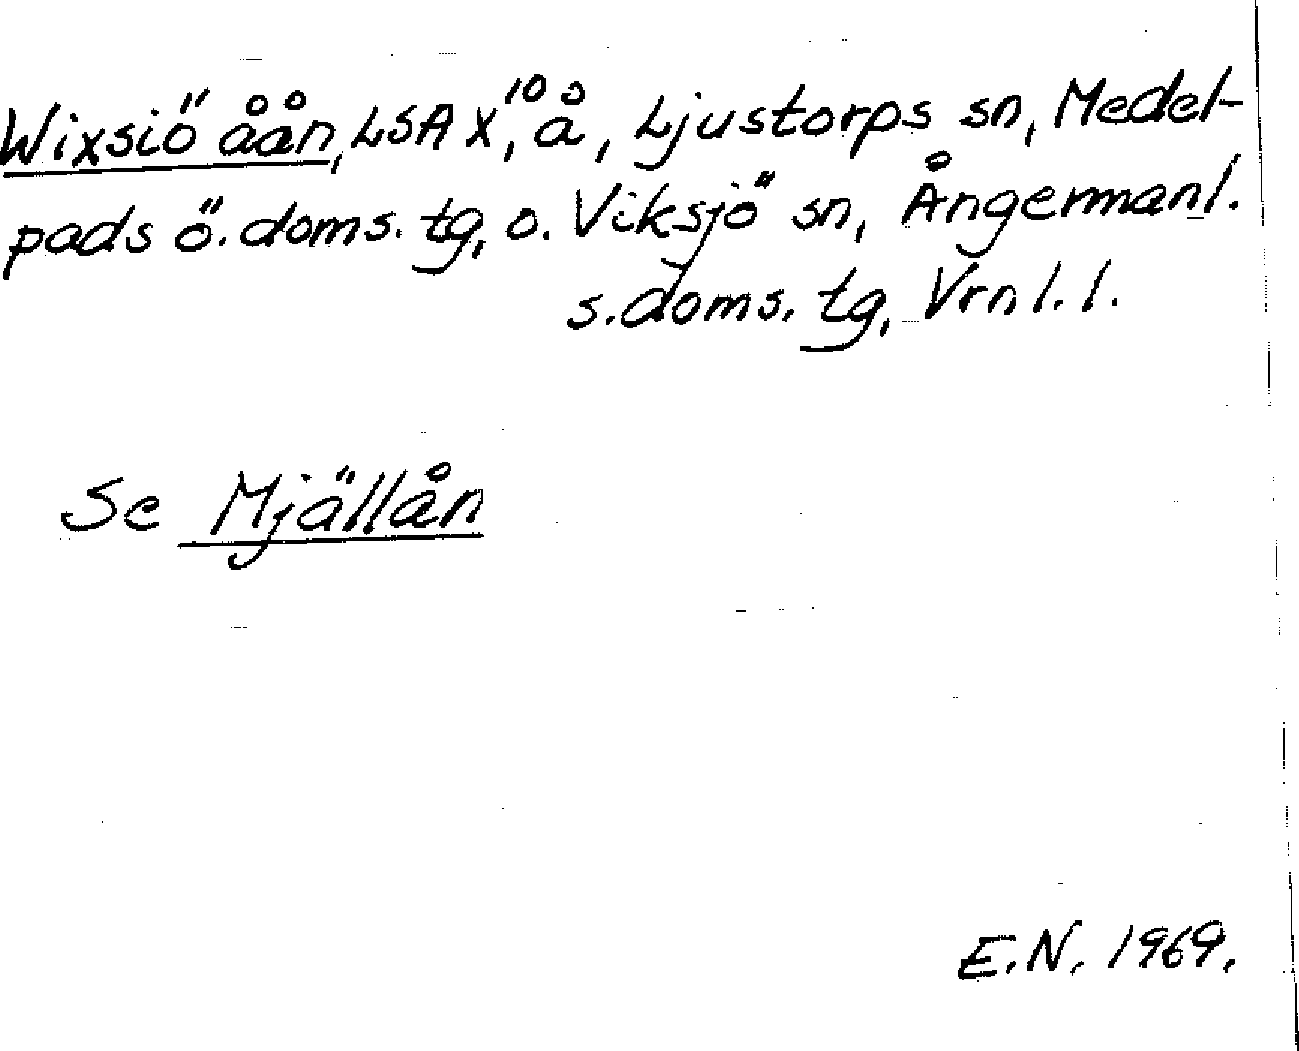 Wixsiö åån, LSA X,¹⁰ å, Ljustorps sn, Medel-
pads ö. doms. tg, o. Viksjö sn, Ångermanl.
s. doms. tg, Vrnl. l.
Se Mjällån
E.N. 1969.